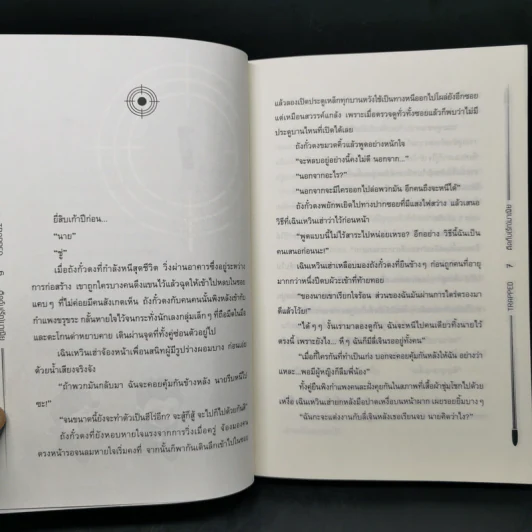 ยี่สิบเก้าปีก่อน...
“นาย”
“ชู่”
เมื่อถังกั๋วตงที่กำลังหนีสุดชีวิต วิ่งผ่านอาคารซึ่งอยู่ระหว่าง
การก่อสร้าง เขาถูกใครบางคนดึงแขนไว้แล้วฉุดให้เข้าไปหลบในซอย
แคบๆ ที่ไม่ค่อยมีคนสังเกตเห็น ถังกั๋วตงกับคนคนนั้นพิงหลังเข้ากับ
กำแพงขรุขระ กลั้นหายใจไว้จนกระทั่งนักเลงกลุ่มเล็กๆ ที่ถือมีดในมือ
และตะโกนด่าหยาบคาย เดินผ่านจุดที่ทั้งคู่ซ่อนตัวอยู่ไป
เฉินเหวินเฮ่าจ้องหน้าเพื่อนสนิทผู้มีรูปร่างผอมบาง ก่อนเอ่ย
ด้วยน้ำเสียงจริงจัง
“ถ้าพวกมันกลับมา ฉันจะคอยคุ้มกันข้างหลัง นายรีบหนีไป
ซะ!”
“จนขนาดนี้ยังจะทำตัวเป็นฮีโร่อีก? จะสู้ก็สู้ จะไปก็ไปด้วยกันสิ”
ถังกั๋วตงที่ยังหอบหายใจแรงจากการวิ่งเมื่อครู่ จ้องมองคน
ตรงหน้ารอจนลมหายใจเริ่มคงที่ จากนั้นก็พากันเดินลึกเข้าไปในซอย
แล้วลองเปิดประตูเหล็กทุกบานหวังใช้เป็นทางหนีออกไปโผล่ยังอีกซอย
แต่เหมือนสวรรค์แกล้ง เพราะเมื่อตรวจดูทั่วทั้งซอยแล้วก็พบว่าไม่มี
ประตูบานไหนที่เปิดได้เลย
ถังกั๋วตงขมวดคิ้วแล้วพูดอย่างหนักใจ
“จะหลบอยู่อย่างนี้คงไม่ดี นอกจาก...”
“นอกจากอะไร?”
“นอกจากจะมีใครออกไปล่อพวกมัน อีกคนถึงจะหนีได้”
ถังกั๋วตงพยักพเยิดไปทางปากซอยที่มีแสงไฟสว่าง แล้วเสนอ
วิธีที่เฉินเหวินเฮ่าว่าไว้ก่อนหน้า
“พูดแบบนี้ไม่ไร้สาระไปหน่อยเหรอ? อีกอย่าง วิธีนี้ฉันเป็น
คนเสนอก่อนนะ!”
เฉินเหวินเฮ่าเหลือบมองถังกั๋วตงที่ยืนข้างๆ ก่อนถูกคนที่อายุ
มากกว่าหนึ่งปีตบผัวะเข้าที่ท้ายทอย
“ของนายเขาเรียกใจร้อน ส่วนของฉันมันผ่านการไตร่ตรองมา
ดีแล้วโว้ย!”
“ได้ๆๆ งั้นเรามาลองดูกัน ฉันจะหนีไปคนเดียวทิ้งนายไว้
ตรงนี้ เพราะยังไง... พี่ ฉันก็มีลี่เจินรออยู่ทั้งคน”
“เมื่อกี้ใครกันที่ทำเป็นเก่ง บอกจะคอยคุ้มกันหลังให้ฉัน อย่างว่า
แหละ...พอมีผู้หญิงก็ลืมพี่น้อง”
ทั้งคู่ยืนพิงกำแพงคนละฝั่งคุยกันในสภาพที่เสื้อผ้าชุ่มโชกไปด้วย
เหงื่อ เฉินเหวินเฮ่ายกหลังมือปาดเหงื่อบนหน้าผาก เผยรอยยิ้มบางๆ
“ฉันกะจะแต่งงานกับลี่เจินหลังเธอเรียนจบ นายคิดว่าไง?”
TRAPPED
7